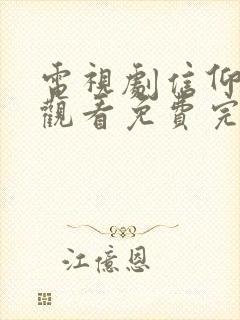 電視劇信仰
觀看免費完
江億恩